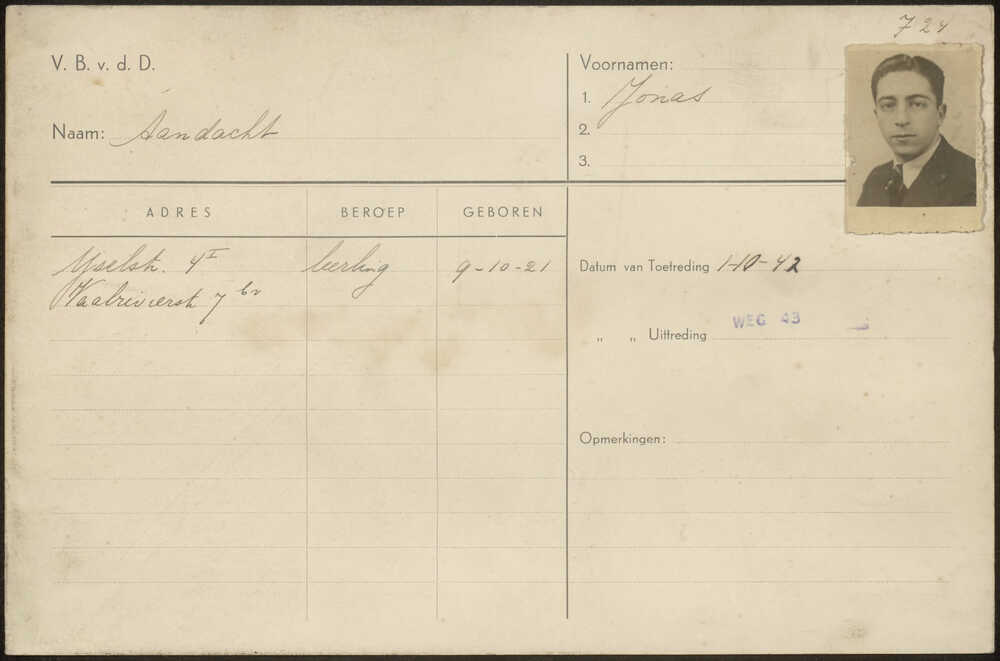 724
V. B. v. d. D.
Naam: Aandacht
Voornamen:
1. Jonas
2.
3.
ADRES BEROEP GEBOREN
IJselstr. 4 I leerling 9-10-21
Waalrivierstr 7 hs
Datum van Toetreding 1-10-42
„ „ Uittreding WEG 43
Opmerkingen: